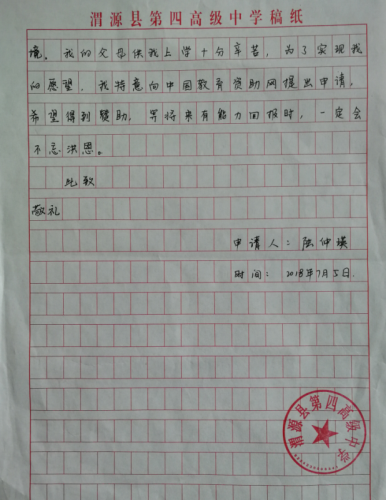 渭源县第四高级中学稿纸
境。我的父母供我上学十分辛苦，为了实现我
的愿望，我特意向中国教育资助网提出申请。
希望得到赞助，等将来有能力回报时，一定会
不忘洪恩。
此致
敬礼
申请人：陆仲瑛
时间：2018年7月5日.
渭源县第四高级中学